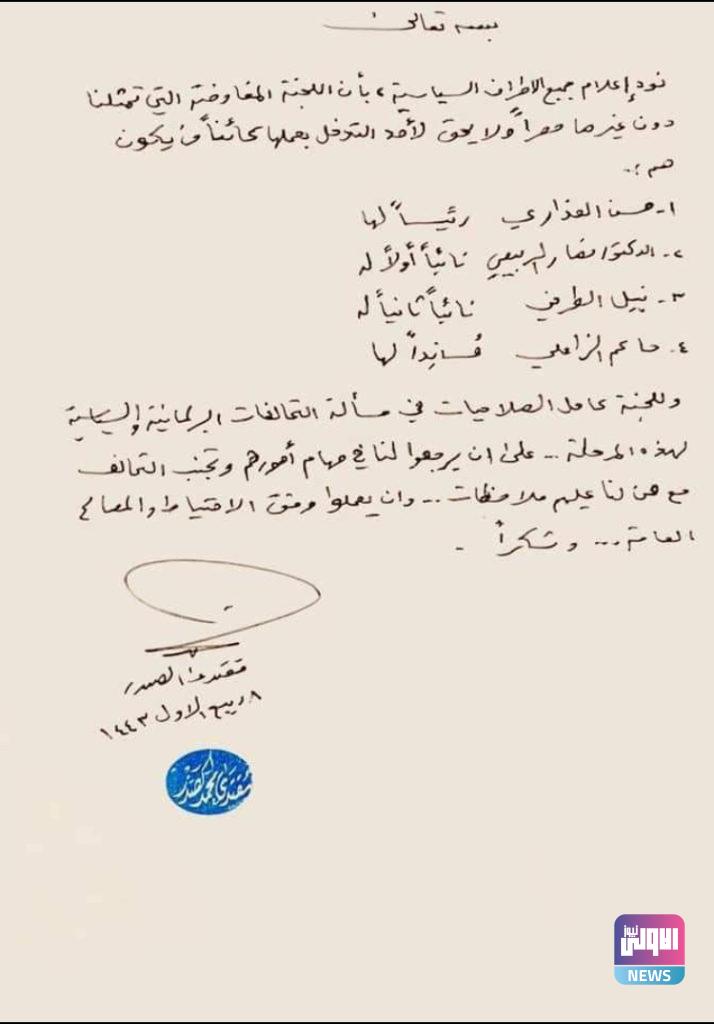 بسمه تعالى
نود إعلام جميع الاطراف السياسية ، بأن اللجنة المفاوضة التي تمثلنا
دون غيرها حصراً ولا يحق لأحد التدخل بعملها كائناً من يكون
هم :.
١- حسن العذاري رئيساً لها
٢- الدكتور نصار الربيعي نائباً أولاً له
٣- نبيل الطرفي نائباً ثانياً له
٤- حاكم الزاملي مُسانِداً لها
وللجنة كامل الصلاحيات في مسألة التحالفات البرلمانية والسياسية
لهذه المرحلة .. على ان يرجعوا لنا في مهام أمورهم وتجنب التحالف
مع من لنا عليهم ملاحظات .. وان يعملوا وفق الاحتياط والمصالح
العامة ... وشكراً .
مقتدى الصدر
٨ ربيع الاول ١٤٤٣
مقتدى محمد الصدر
الاولى نيوز
NEWS